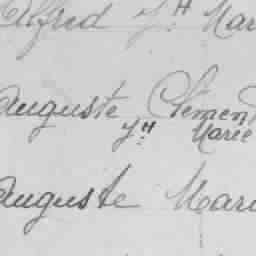 Alfred Jh Mar
Auguste Clément
Jh Marie
Auguste Mari